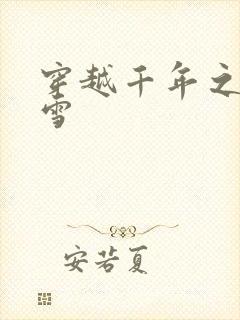 穿越千年之
雪
安若夏